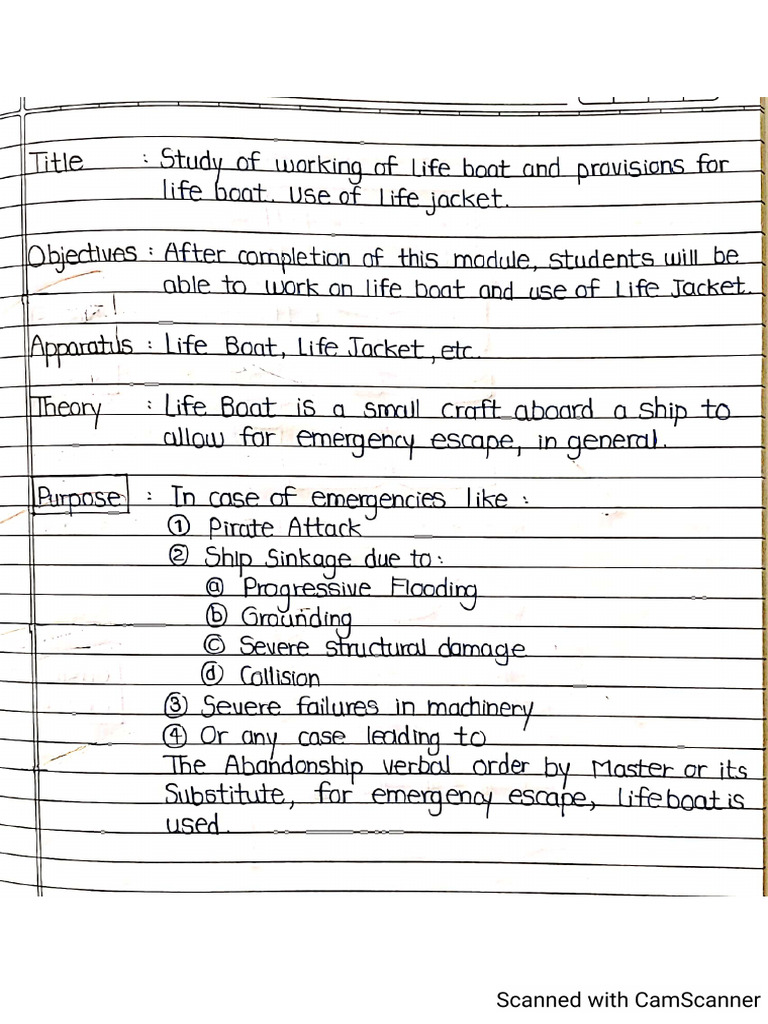 Title : Study of working of life boat and provisions for
life boat. Use of Life jacket.
Objectives : After completion of this module, students will be
able to work on life boat and use of Life Jacket.
Apparatus : Life Boat, Life Jacket, etc.
Theory : Life Boat is a small craft aboard a ship to
allow for emergency escape, in general.
Purpose : In case of emergencies like :
① Pirate Attack
② Ship Sinkage due to:
ⓐ Progressive Flooding
ⓑ Grounding
ⓒ Severe structural damage
ⓓ Collision
③ Severe failures in machinery
④ Or any case leading to
The Abandonship verbal order by Master or its
Substitute, for emergency escape, lifeboat is
used.
Scanned with CamScanner